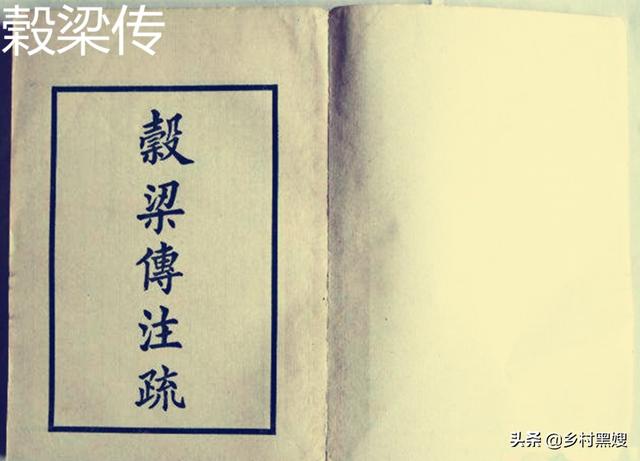 榖梁传
穀梁傳注疏
头条 @乡村黑嫂